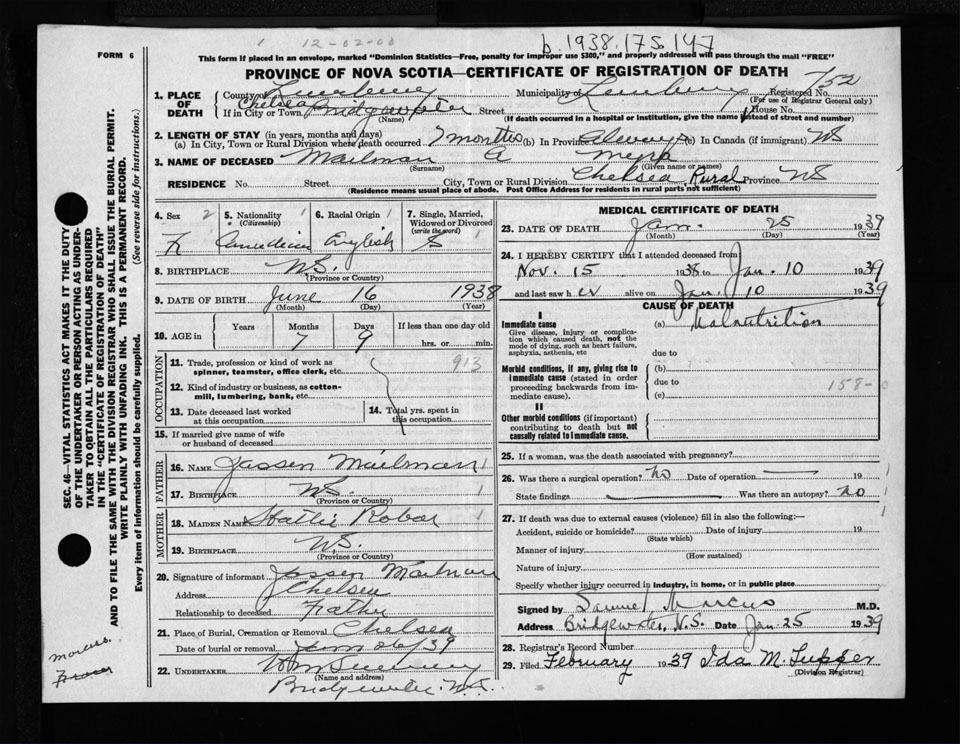 b. 1938.175.147
1 12-02-00
FORM 6
This form if placed in an envelope, marked "Dominion Statistics—Free, penalty for improper use $300," and properly addressed will pass through the mail "FREE"
PROVINCE OF NOVA SCOTIA—CERTIFICATE OF REGISTRATION OF DEATH
752
1. PLACE OF DEATH County of Lunenburg Municipality of Lunenburg Registered No.
(For use of Registrar General only)
If in City or Town Chelsea Bridgewater Street House No.
(Name) (If death occurred in a hospital or institution, give the name instead of street and number)
2. LENGTH OF STAY (in years, months and days)
(a) In City, Town or Rural Division where death occurred 7 months (b) In Province always (c) In Canada (if immigrant) NS
3. NAME OF DECEASED Mailman A
(Surname) (Given name or names)
RESIDENCE No. Street City, Town or Rural Division Chelsea Rural Province NS
(Residence means usual place of abode. Post Office Address for residents in rural parts not sufficient)
4. Sex 2
5. Nationality 1 (Citizenship) Canadian
6. Racial Origin 1 English
7. Single, Married, Widowed or Divorced (write the word) S 1
8. BIRTHPLACE N.S.
(Province or Country)
9. DATE OF BIRTH June 16 1938
(Month) (Day) (Year)
10. AGE in Years Months Days If less than one day old
7 9 hrs. or min.
OCCUPATION
11. Trade, profession or kind of work as spinner, teamster, office clerk, etc. 913
12. Kind of industry or business, as cotton-mill, lumbering, bank, etc.
13. Date deceased last worked at this occupation
14. Total yrs. spent in this occupation
15. If married give name of wife or husband of deceased
FATHER
16. NAME Jassen Mailman 1
17. Birthplace N.S. 1
(Province or Country)
MOTHER
18. MAIDEN NAME Hattie Robar 1
19. BIRTHPLACE N.S.
(Province or Country)
20. Signature of informant Jassen Mailman
Address Chelsea
Relationship to deceased Father
21. Place of Burial, Cremation or Removal Chelsea
Date of burial or removal Jan 26/39
22. UNDERTAKER Wm Sweeney
(Name and address)
Bridgewater. N.S.
MEDICAL CERTIFICATE OF DEATH
23. DATE OF DEATH Jan. 25 1939
(Month) (Day) (Year)
24. I HEREBY CERTIFY that I attended deceased from
Nov. 15 1938 to Jan. 10 1939
and last saw h er alive on Jan. 10 1939
CAUSE OF DEATH
I
Immediate cause (a) Malnutrition
Give disease, injury or complication which caused death, not the mode of dying, such as heart failure, asphyxia, asthenia, etc
due to
Morbid conditions, if any, giving rise to immediate cause (stated in order proceeding backwards from immediate cause).
(b)
due to 158-0
(c)
II
Other morbid conditions (if important) contributing to death but not causally related to immediate cause.
25. If a woman, was the death associated with pregnancy?
26. Was there a surgical operation? no Date of operation 19
State findings Was there an autopsy? no
27. If death was due to external causes (violence) fill in also the following:—
Accident, suicide or homicide? Date of injury 19
(State which)
Manner of injury
(How sustained)
Nature of injury
Specify whether injury occurred in industry, in home, or in public place
Signed by Samuel Marcus M.D.
Address Bridgewater, N.S. Date Jan. 25 1939
28. Registrar's Record Number
29. Filed February 1939 Ida M. Tupper
(Division Registrar)
SEC. 46—VITAL STATISTICS ACT MAKES IT THE DUTY
OF THE UNDERTAKER OR PERSON ACTING AS UNDERTAKER TO OBTAIN ALL THE PARTICULARS REQUIRED
IN THE "CERTIFICATE OF REGISTRATION OF DEATH"
AND TO FILE THE SAME WITH THE DIVISION REGISTRAR WHO SHALL ISSUE THE BURIAL PERMIT.
WRITE PLAINLY WITH UNFADING INK. THIS IS A PERMANENT RECORD.
Every item of information should be carefully supplied. (See reverse side for instructions.)